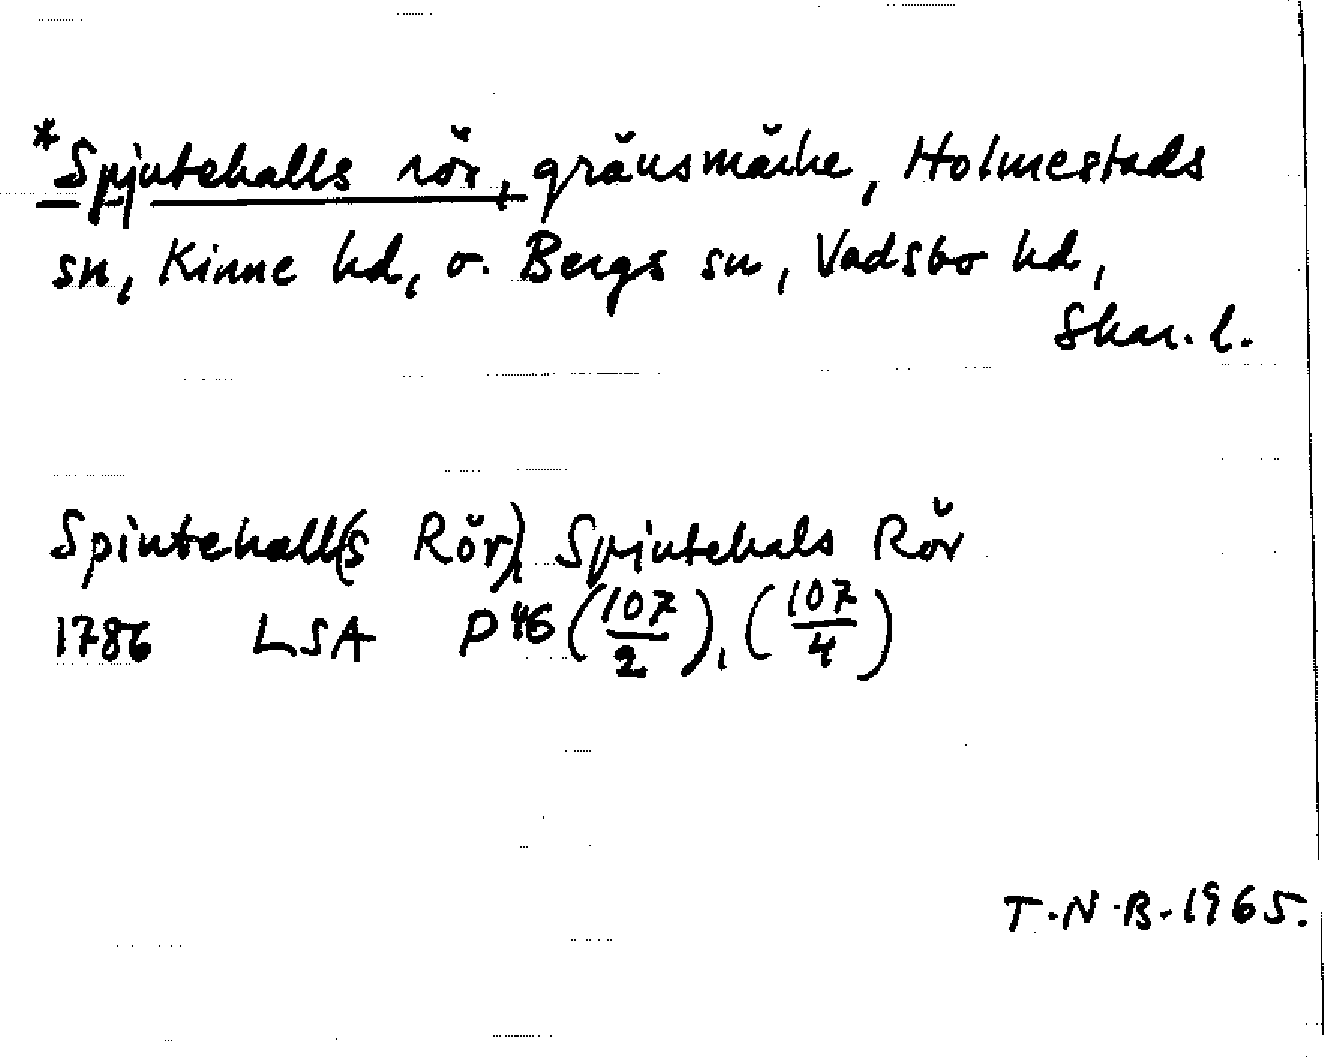 *Spintehalls rör, gränsmärke, Holmestads
sn, Kinne hd, o. Bergs sn, Vadsbo hd,
Skar. l.
Spintehall(s Rör), Spintehals Rör
1786 LSA P46 (107/2), (107/4)
T.N.B. 1965.